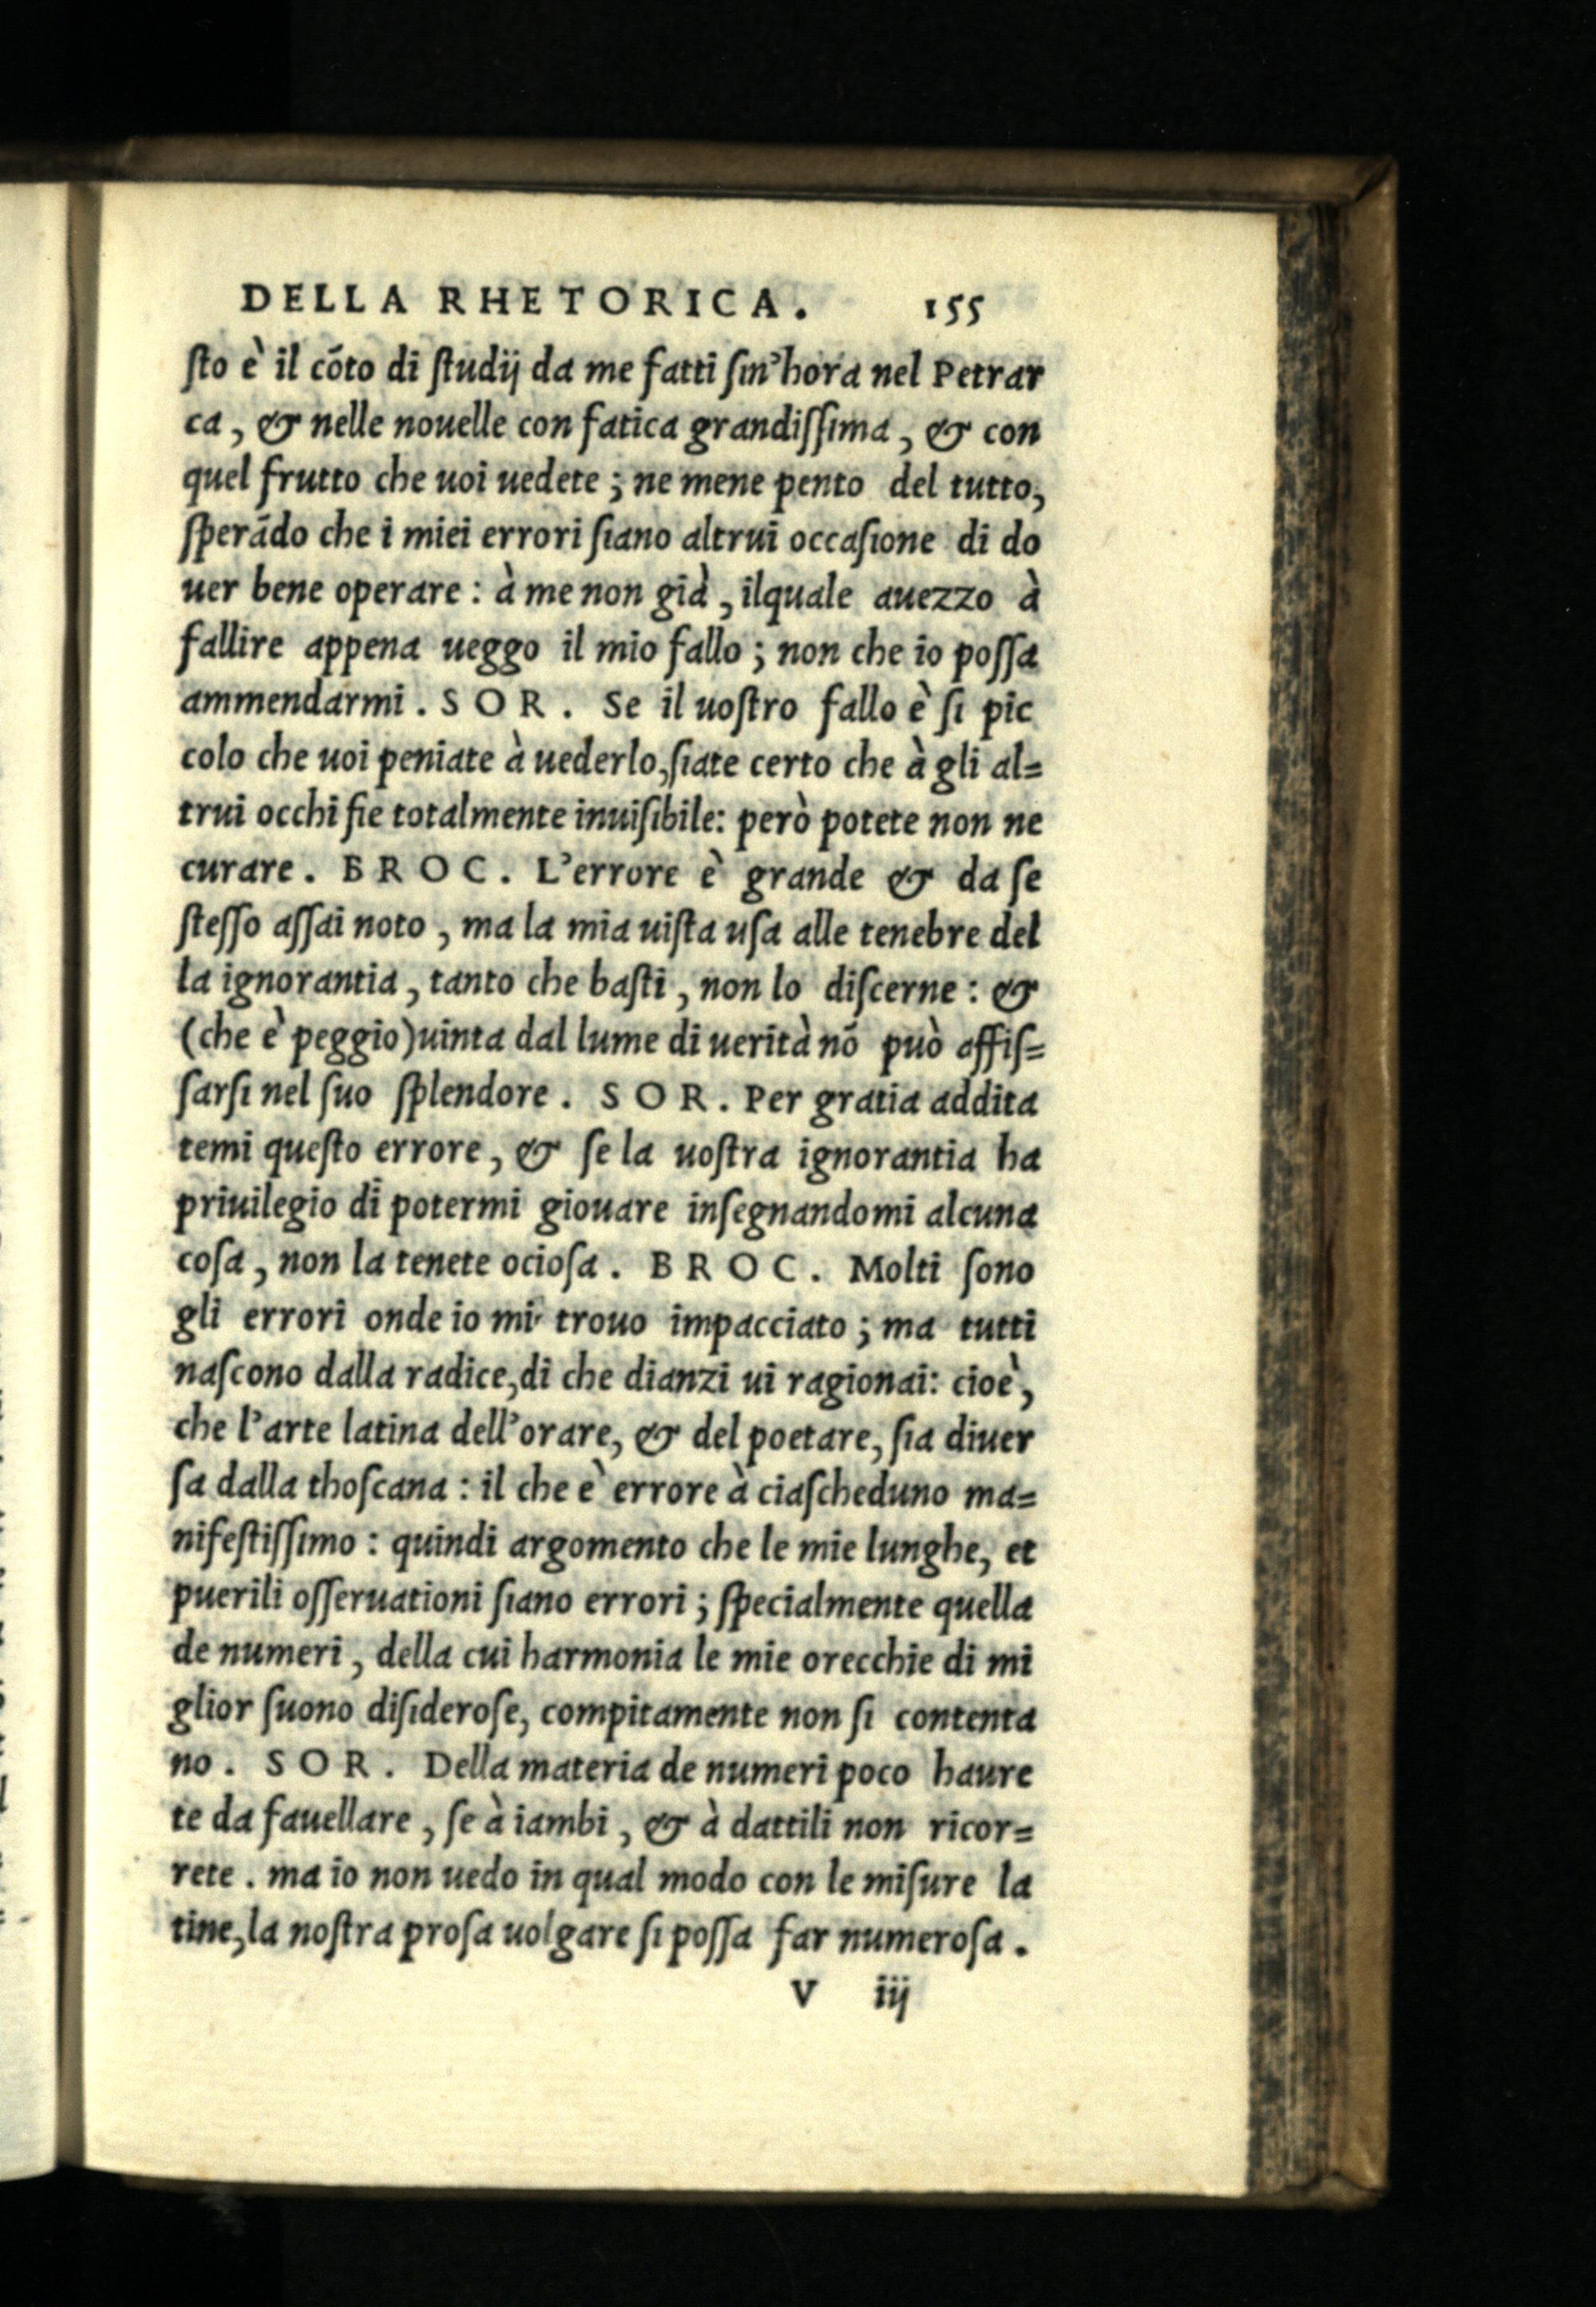 DELLA RHETORICA. 155
ſto è il cōto di ſtudij da me fatti ſin'hora nel Petrar
ca, & nelle nouelle con fatica grandiſſima, & con
quel frutto che uoi uedete; ne mene pento del tutto,
ſperādo che i miei errori ſiano altrui occaſione di do
uer bene operare: à me non già, ilquale auezzo à
fallire appena ueggo il mio fallo; non che io poſſa
ammendarmi. SOR. Se il uoſtro fallo è ſi pic
colo che uoi peniate à uederlo, ſiate certo che à gli al=
trui occhi fie totalmente inuiſibile: però potete non ne
curare. BROC. L'errore è grande & da ſe
ſteſſo aſſai noto, ma la mia uiſta uſa alle tenebre del
la ignorantia, tanto che baſti, non lo diſcerne: &
(che è peggio) uinta dal lume di uerità nō può affiſ=
ſarſi nel ſuo ſplendore. SOR. Per gratia addita
temi queſto errore, & ſe la uoſtra ignorantia ha
priuilegio di potermi giouare inſegnandomi alcuna
coſa, non la tenete ocioſa. BROC. Molti ſono
gli errori onde io mi trouo impacciato; ma tutti
naſcono dalla radice, di che dianzi ui ragionai: cioè,
che l'arte latina dell'orare, & del poetare, ſia diuer
ſa dalla thoſcana: il che è errore à ciaſcheduno ma=
nifeſtiſſimo: quindi argomento che le mie lunghe, et
puerili oſſeruationi ſiano errori; ſpecialmente quella
de numeri, della cui harmonia le mie orecchie di mi
glior ſuono diſideroſe, compitamente non ſi contenta
no. SOR. Della materia de numeri poco haure
te da fauellare, ſe à iambi, & à dattili non ricor=
rete. ma io non uedo in qual modo con le miſure la
tine, la noſtra proſa uolgare ſi poſſa far numeroſa.
V iij